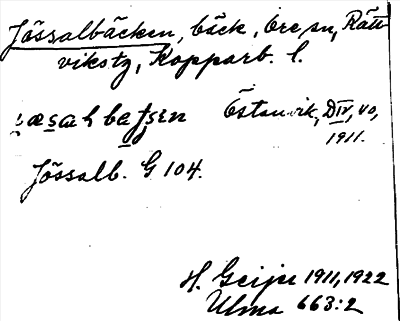 Jössalbäcken, bäck, Ore sn, Rätt-
vikstg, Kopparb. l.
Östanvik, DIV, vo,
1911.
Jössalb. G 104.
H. Geijer 1911, 1922
Ulma 663:2